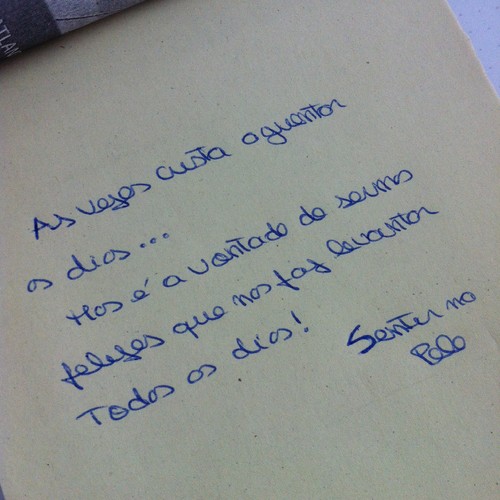 ATLAN
As vezes custa aguentar
os dias...
Mas é a vontade de sermos
felizes que nos faz levantar
Todos os dias!
Sentir na
Pele